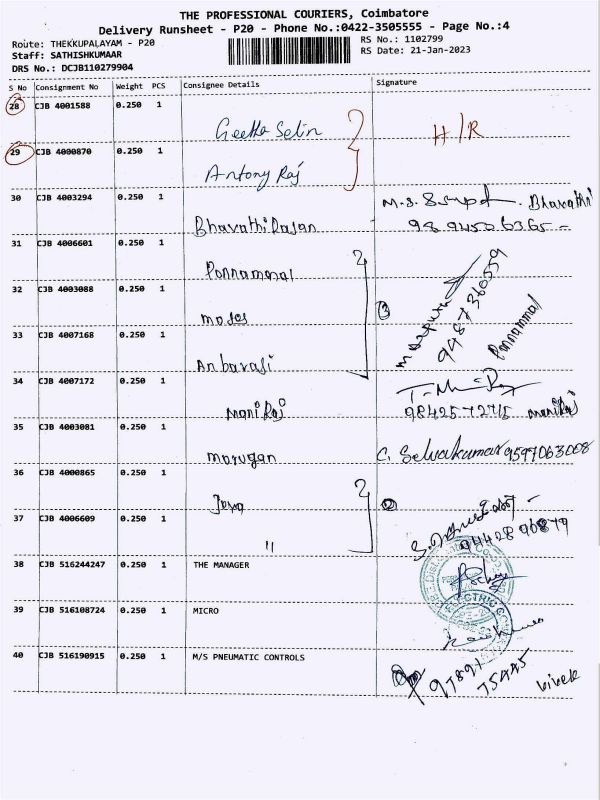 THE PROFESSIONAL COURIERS, Coimbatore
Delivery Runsheet - P20 - Phone No.:0422-3505555 - Page No.:4
Route: THEKKUPALAYAM - P20
RS No.: 1102799
Staff: SATHISHKUMAAR
RS Date: 21-Jan-2023
DRS No.: DCJB110279904
S No Consignment No Weight PCS Consignee Details Signature
28 CJB 4001588 0.250 1
Geetha Selin H/R
29 CJB 4000870 0.250 1
Antony Raj
30 CJB 4003294 0.250 1
BharathiDasan
31 CJB 4006601 0.250 1
Ponnammal
32 CJB 4003088 0.250 1
moses 3
9487360559
Ponnammal
33 CJB 4007168 0.250 1
Anbarasi
34 CJB 4007172 0.250 1
Mani Raj 9842572715 maniRaj
35 CJB 4003081 0.250 1
morugan C. Selvakumar 9597063008
36 CJB 4000865 0.250 1
Jaya 2
37 CJB 4006609 0.250 1
"
38 CJB 516244247 0.250 1 THE MANAGER
39 CJB 516108724 0.250 1 MICRO
40 CJB 516190915 0.250 1 M/S PNEUMATIC CONTROLS
97891
75445 vivek